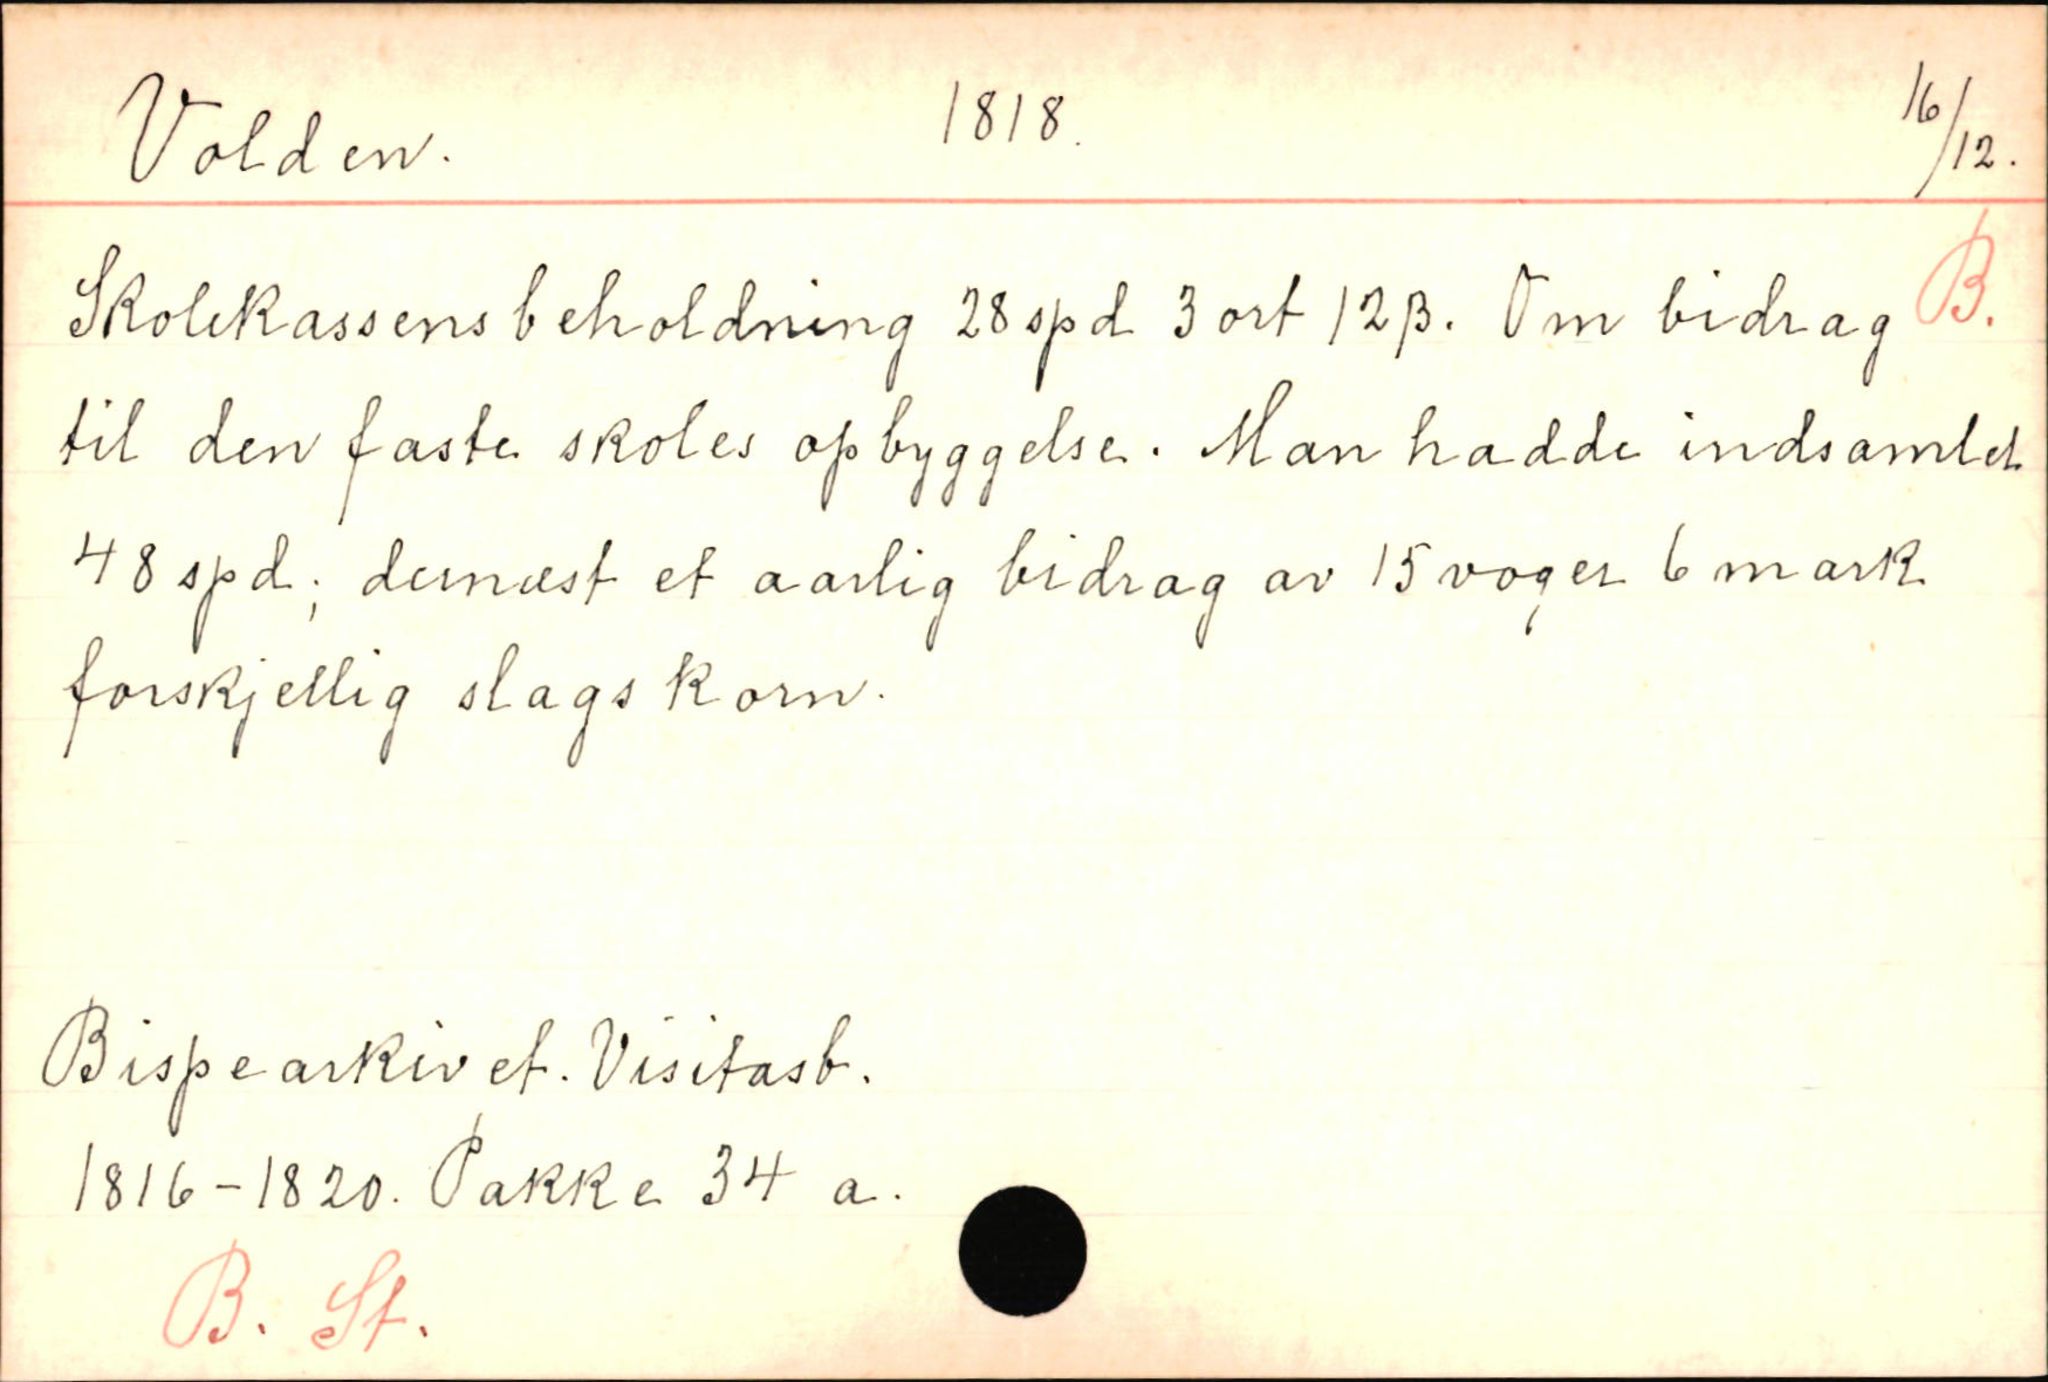 Volden. 1818. 16/12.
Skolekassens beholdning 28 spd 3 ort 12 β. Om bidrag B.
til den faste skoles opbyggelse. Man hadde indsamlet
48 spd; dernæst et aarlig bidrag av 15 voger 6 mark
forskjellig slags korn.
Bispearkivet. Visitasb.
1816-1820. Pakke 34 a.
B. St.